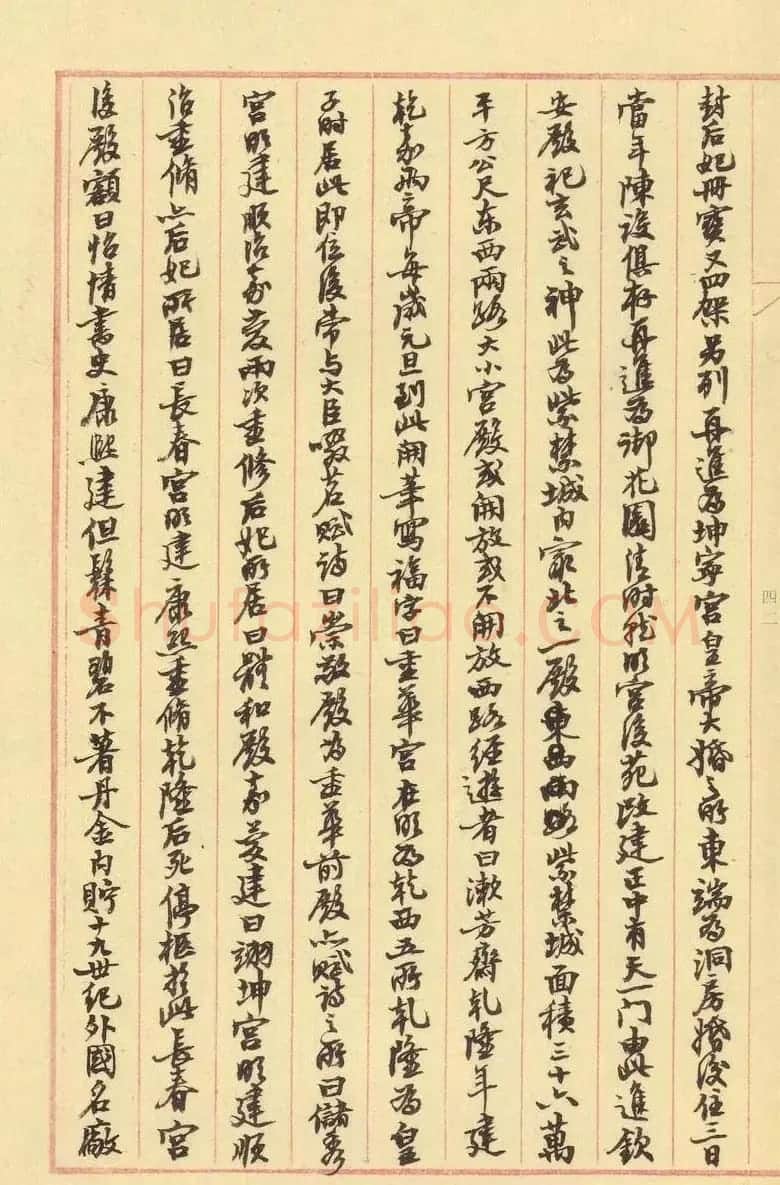 封后妃冊寶又四架另列再進爲坤寧宮皇帝大婚之所東端爲洞房婚後住三日
當年陳設俱存再進爲御花園清時就明宮後苑改建正中有天一门由此進欽
安殿祀玄武之神此爲紫禁城内最北之一殿東西兩路紫禁城面積三十六萬
平方公尺东西兩路大小宮殿或開放或不開放西路經遊者曰漱芳齋乾隆年建
乾嘉兩帝每歲元旦到此開筆寫福字曰重華宮在明爲乾西五所乾隆爲皇
子時居此即位後常与大臣啜茗賦詩曰崇敬殿爲重華前殿亦賦詩之所曰儲秀
宮明建順治嘉慶兩次重修后妃所居曰體和殿嘉慶建曰翊坤宮明建順
治重脩亦后妃所居曰長春宮明建康熙重脩乾隆后死停柩於此長春宮
後殿額曰怡情書史康熙建但髹青碧不著丹金内貯十九世纪外國名廠
四二
shufaziliao.com